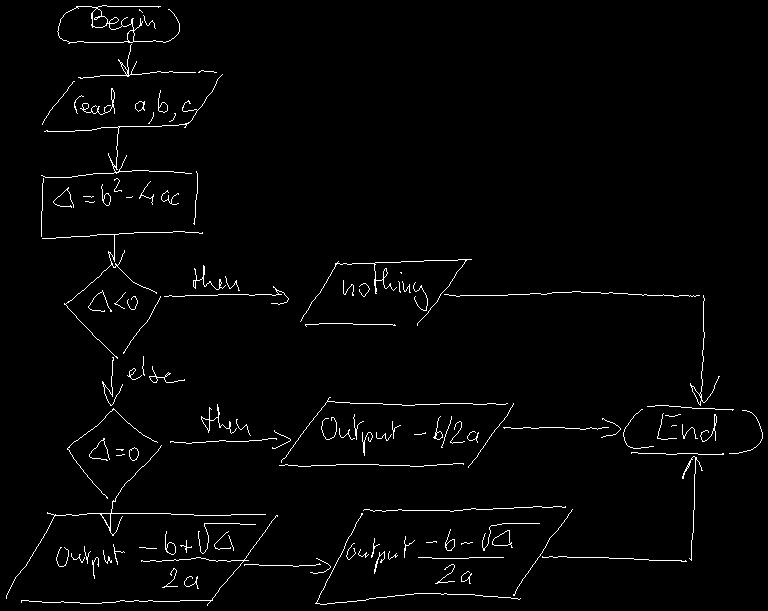 Begin
read a,b,c
Δ = b² - 4ac
Δ<0
then
nothing
else
Δ=0
then
Output - b/2a
End
Output -b+√Δ / 2a
output -b-√Δ / 2a